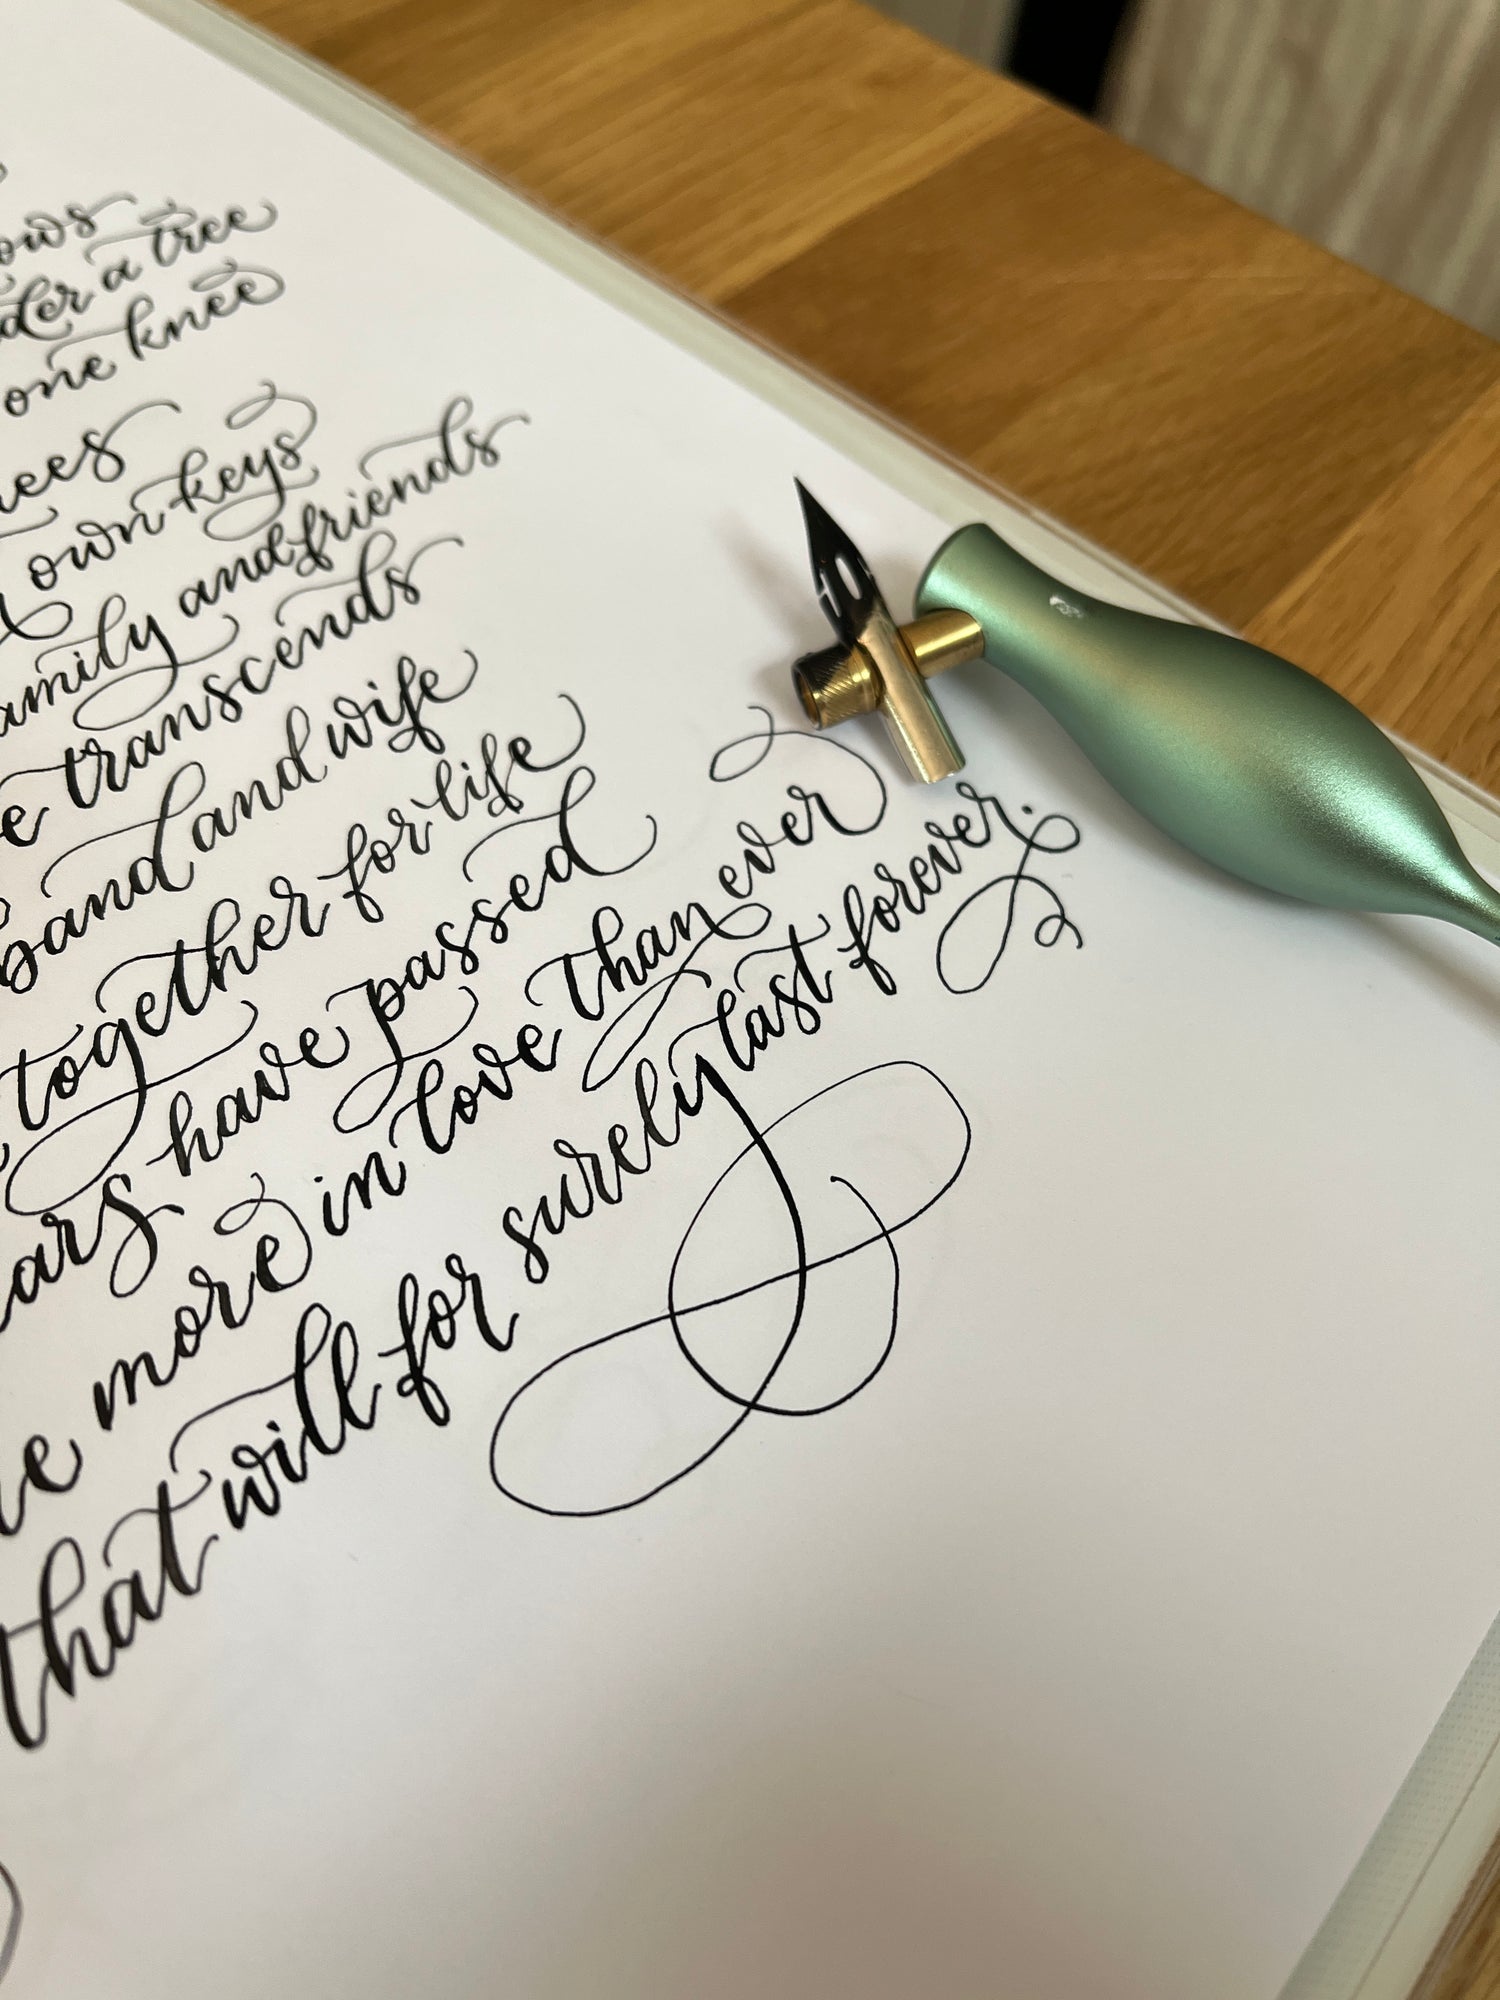 a tree
one knee
own keys
family and friends
transcends
and wife
together for life
have passed
more in love than ever
that will for surely last forever.